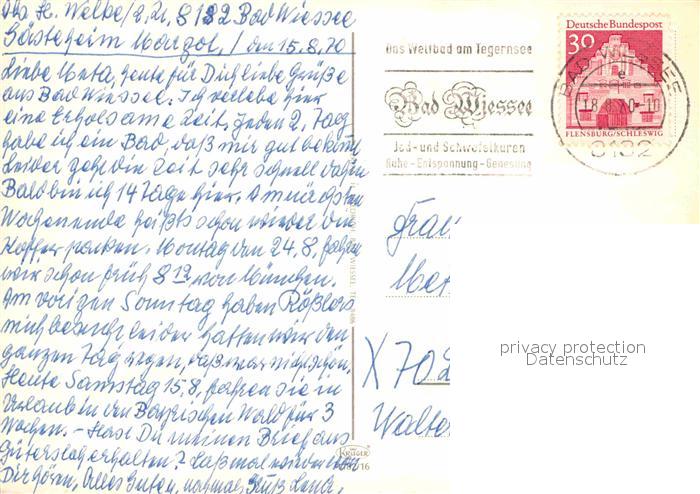 Abs. H. Welke / z. Zt. 8182 Bad Wiessee
Gästeheim Margot, / den 15.8.70
Liebe Meta, heute für Dich liebe Grüße
aus Bad Wiessee. Ich verlebe hier
eine erholsame Zeit. Jeden 2. Tag
habe ich ein Bad, daß mir gut bekommt
Leider geht die Zeit sehr schnell dahin
Bald bin ich 14 Tage hier. Am nächsten
Wochenende heißts schon wieder die
Koffer packen. Montag den 24.8. fahren
wir schon früh 8 12 von München.
Am vorigen Sonntag haben Rößlers
mich besucht leider hatten wir den
ganzen Tag regen, daß war nicht schön.
Heute Samstag 15.8. fahren sie in
Urlaub in den Bayrischen Wald für 3
Wochen. - Hast Du meinen Brief aus
Gütersloh erhalten? Laß mal wieder von
Dir hören, Alles Guten, nochmals Gruß
Das Weltbad am Tegernsee
Bad Wiessee
Jod- und Schwefelkuren
Ruhe - Entspannung - Genesung
Deutsche Bundespost
30
FLENSBURG/SCHLESWIG
BAD WIESSEE
e
18.8.70-10
8182
Frau
Met
X 702
Walte
KRÜGER
/16
privacy protection
Datenschutz